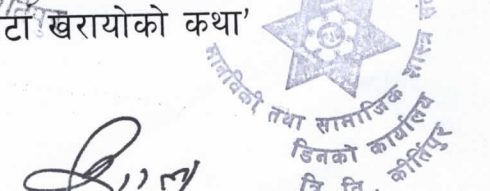 टा खरायोको कथा'
मानविकी तथा सामाजिक शास्त्र
डिनको कार्यालय
त्रि. वि. कीर्तिपुर